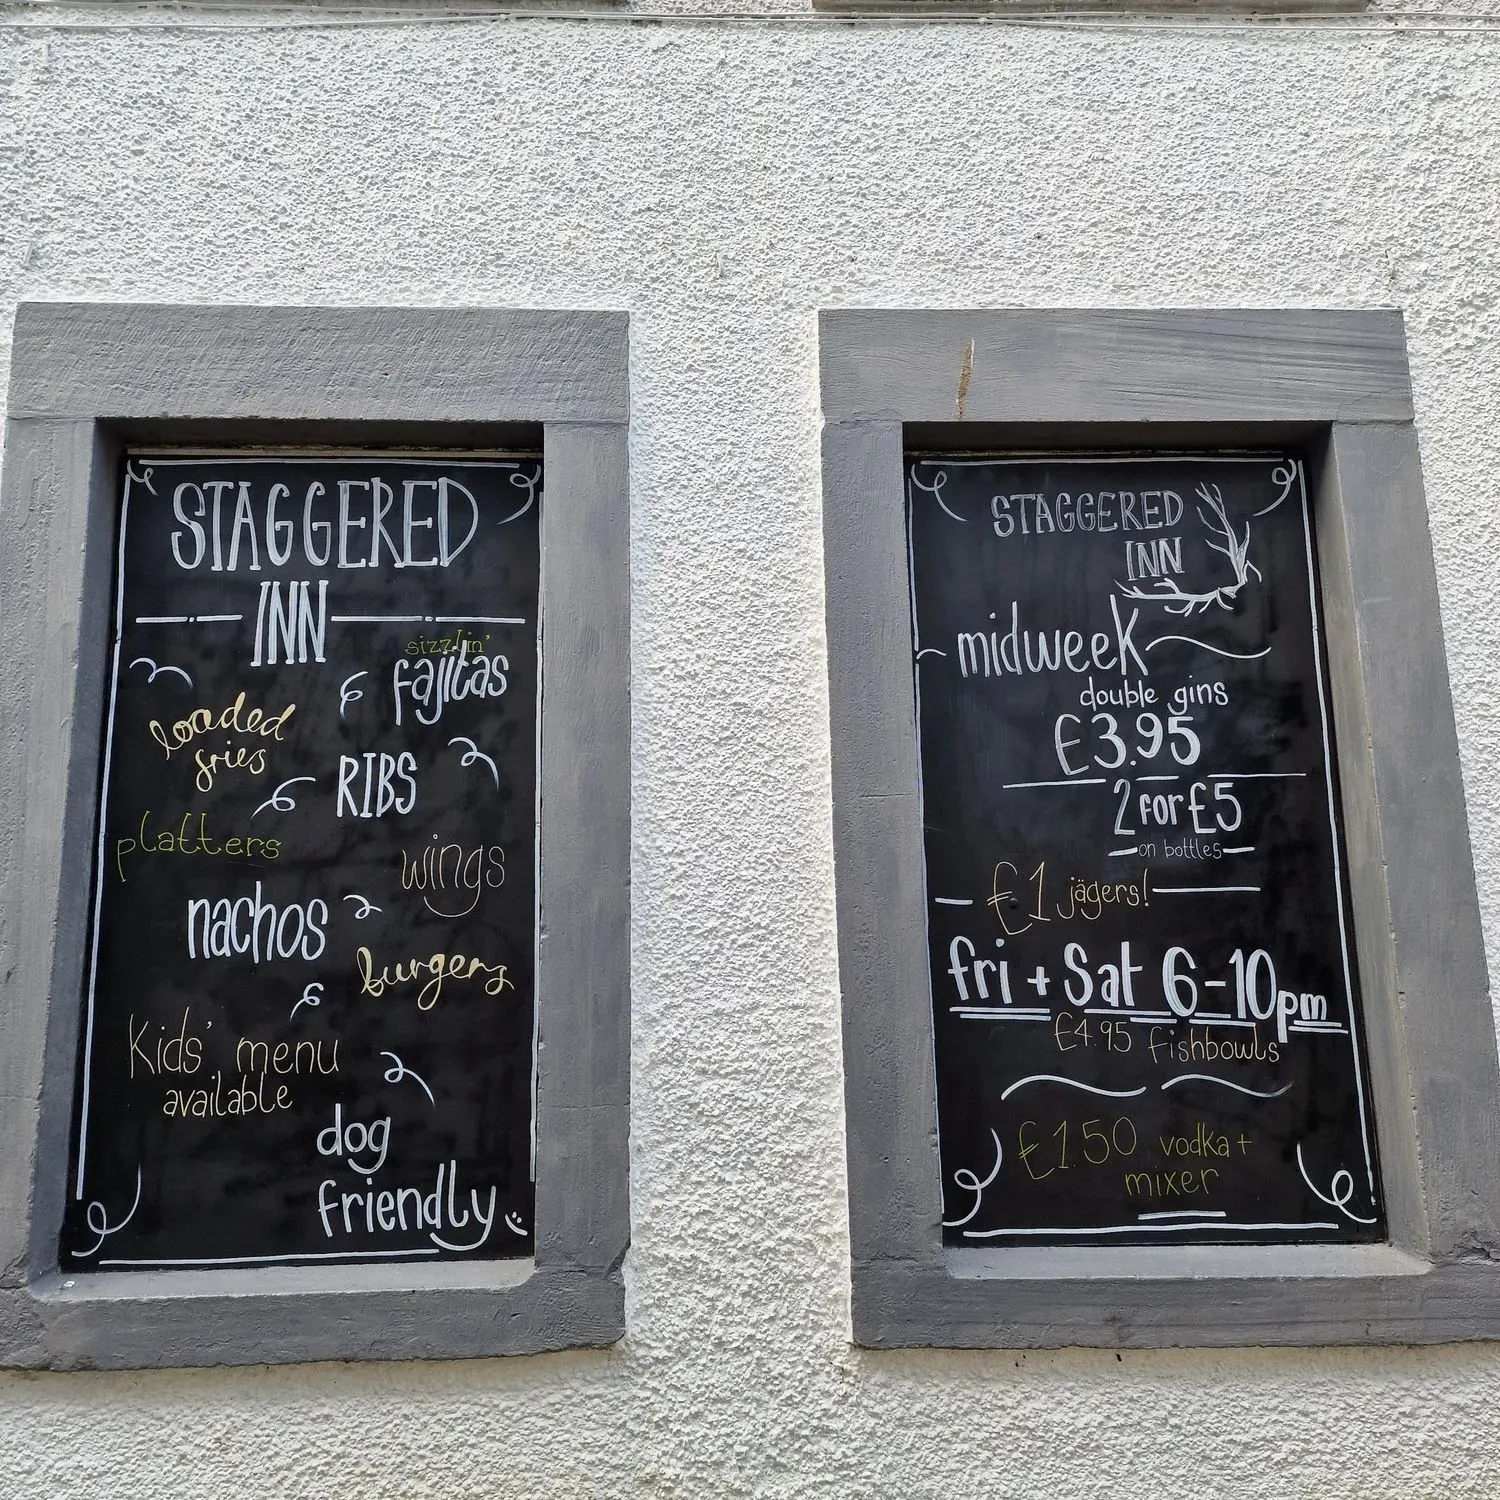 STAGGERED
INN
sizzlin'
fajitas
loaded
fries
RIBS
platters
wings
nachos
burgers
Kids' menu
available
dog
friendly
STAGGERED
INN
midweek
double gins
£3.95
2 for £5
on bottles
£1 jägers!
fri + Sat 6-10pm
£4.95 fishbowls
£1.50 vodka +
mixer